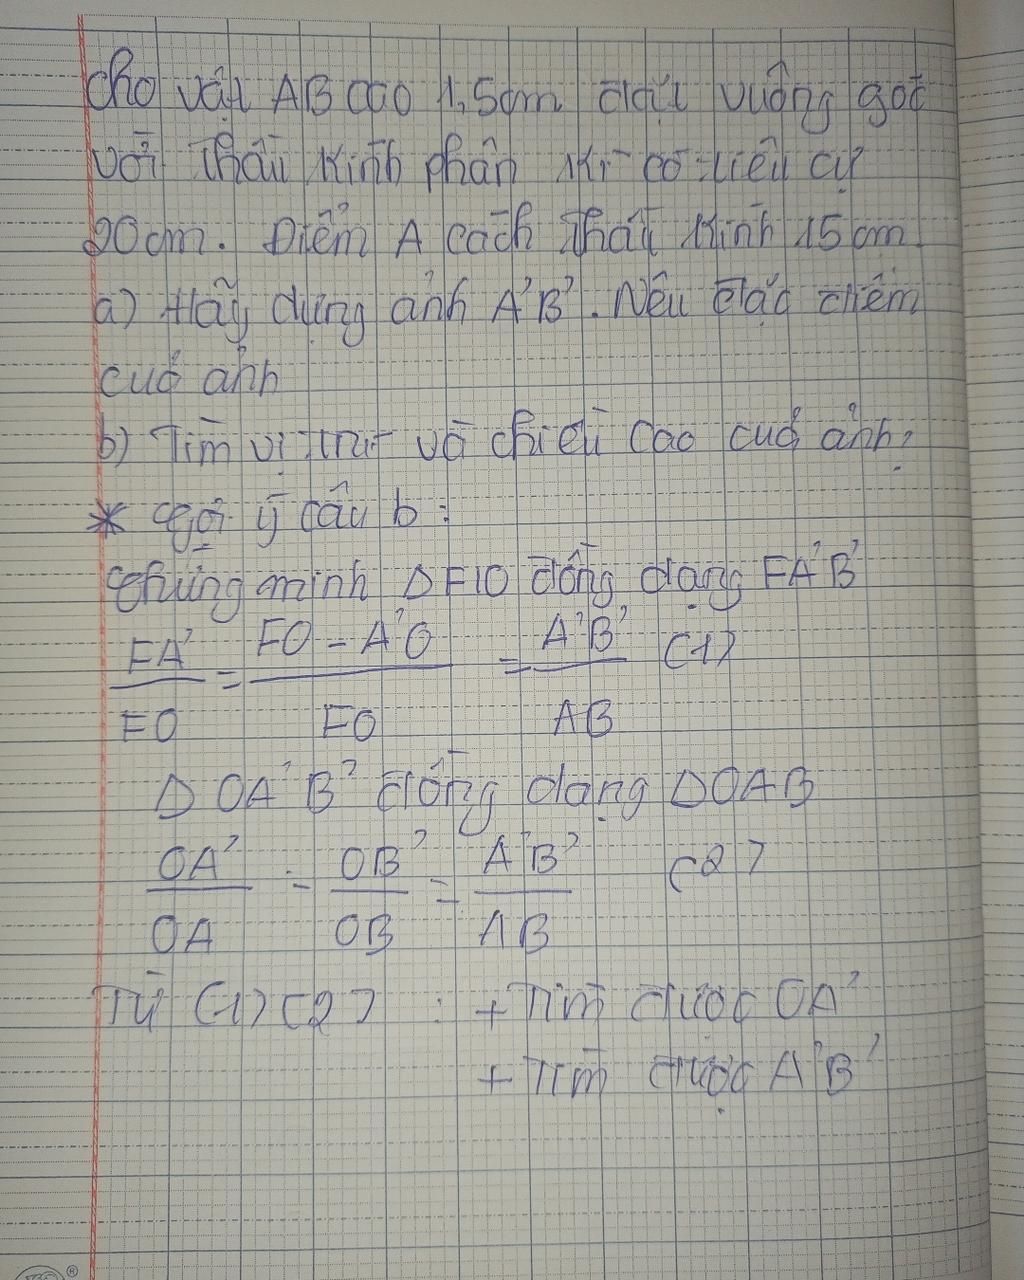 Cho vật AB cao 1,5cm đặt vuông góc
với thấu kính phân kì có tiêu cự
20cm. Điểm A cách thấu kính 15cm
a) Hãy dựng ảnh A'B'. Nêu đặc điểm
của ảnh
b) Tìm vị trí và chiều cao của ảnh?
* Gợi ý câu b:
Chứng minh Δ FIO đồng dạng FA'B'
FA'/FO = FO - A'O/FO = A'B'/AB (1)
Δ OA'B' đồng dạng Δ OAB
OA'/OA = OB'/OB = A'B'/AB (2)
Từ (1) (2) : + Tìm được OA'
+ Tìm được A'B'